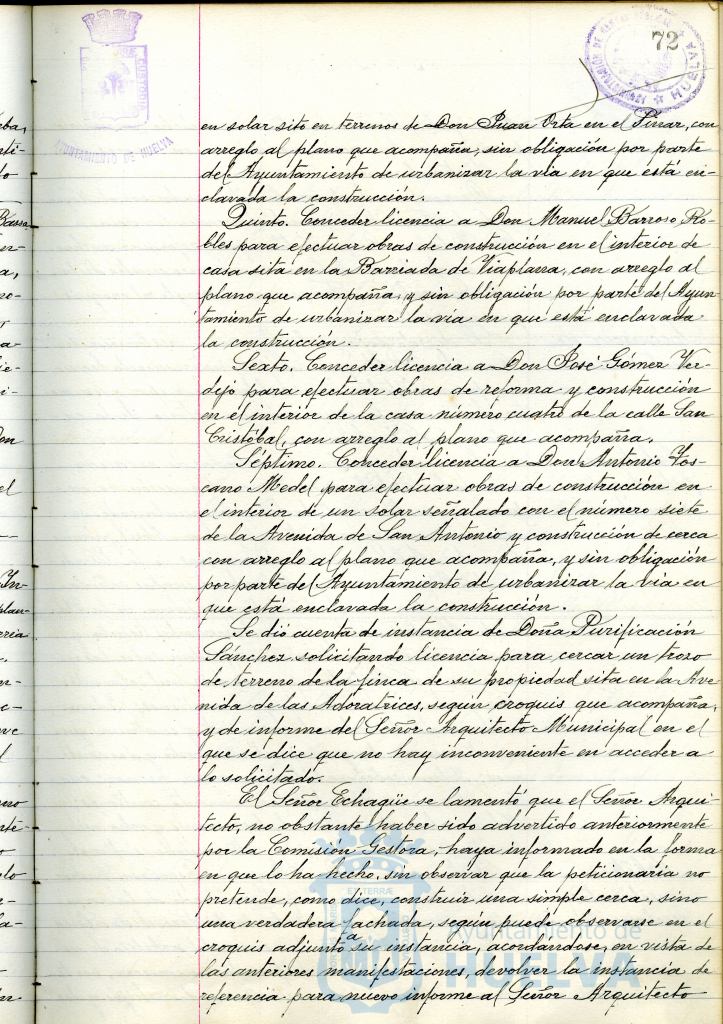 72
AYUNTAMIENTO DE HUELVA
HUELVA
en solar sito en terrenos de Don Juan Orta en el Pinar, con
arreglo al plano que acompaña, sin obligación por parte
del Ayuntamiento de urbanizar la vía en que está en-
clavada la construcción.
Quinto. Conceder licencia a Don Manuel Barroso Ro-
bles para efectuar obras de construcción en el interior de
casa sita en la Barriada de Viaplana, con arreglo al
plano que acompaña, y sin obligación por parte del Ayun-
tamiento de urbanizar la vía en que está enclavada
la construcción.
Sexto. Conceder licencia a Don José Gómez Ver-
dejo para efectuar obras de reforma y construcción
en el interior de la casa número cuatro de la calle San
Cristóbal, con arreglo al plano que acompaña.
Séptimo. Conceder licencia a Don Antonio Tos-
cano Medel para efectuar obras de construcción en
el interior de un solar señalado con el número siete
de la Avenida de San Antonio y construcción de cerca
con arreglo al plano que acompaña, y sin obligación
por parte del Ayuntamiento de urbanizar la vía en
que está enclavada la construcción.
Se dió cuenta de instancia de Doña Purificación
Sánchez solicitando licencia para cercar un trozo
de terreno de la finca de su propiedad sita en la Ave-
nida de las Adoratrices, según croquis que acompaña,
y de informe del Señor Arquitecto Municipal en el
que se dice que no hay inconveniente en acceder a
lo solicitado.
El Señor Echagüe se lamentó que el Señor Arqui-
tecto, no obstante haber sido advertido anteriormente
por la Comisión Gestora, haya informado en la forma
en que lo ha hecho, sin observar que la peticionaria no
pretende, como dice, construir una simple cerca, sino
una verdadera fachada, según puede observarse en el
croquis adjunto a su instancia, acordándose, en vista de
las anteriores manifestaciones, devolver la instancia de
referencia para nuevo informe al Señor Arquitecto
Ayuntamiento de
HUELVA